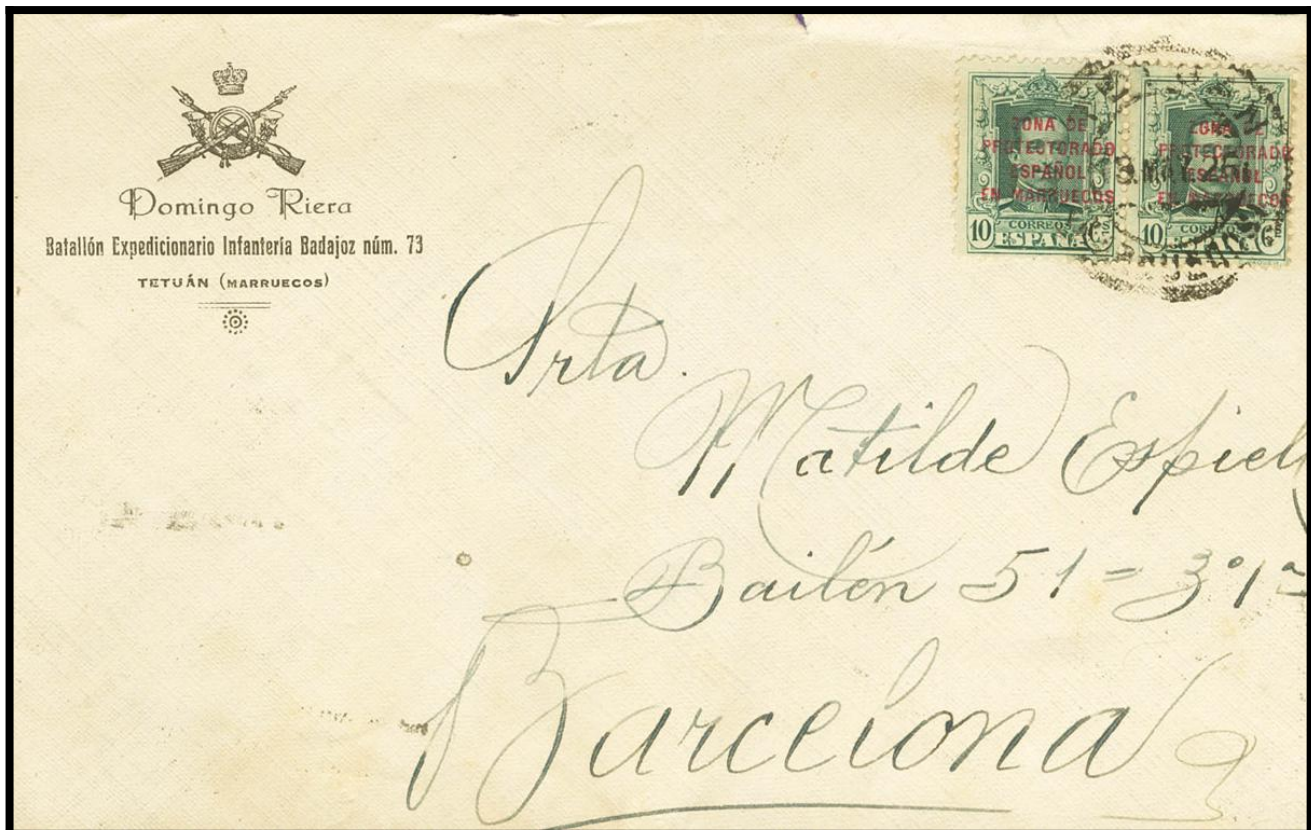 Domingo Riera
Batallón Expedicionario Infantería Badajoz núm. 73
TETUÁN (MARRUECOS)
ZONA DE
PROTECTORADO
ESPAÑOL
EN MARRUECOS
10 CORREOS
ESPAÑA
ZONA DE
PROTECTORADO
ESPAÑOL
EN MARRUECOS
10 CORREOS
ESPAÑA
MAY 25
Srta.
Matilde Espiel
Bailén 51 = 3º 1ª
Barcelona